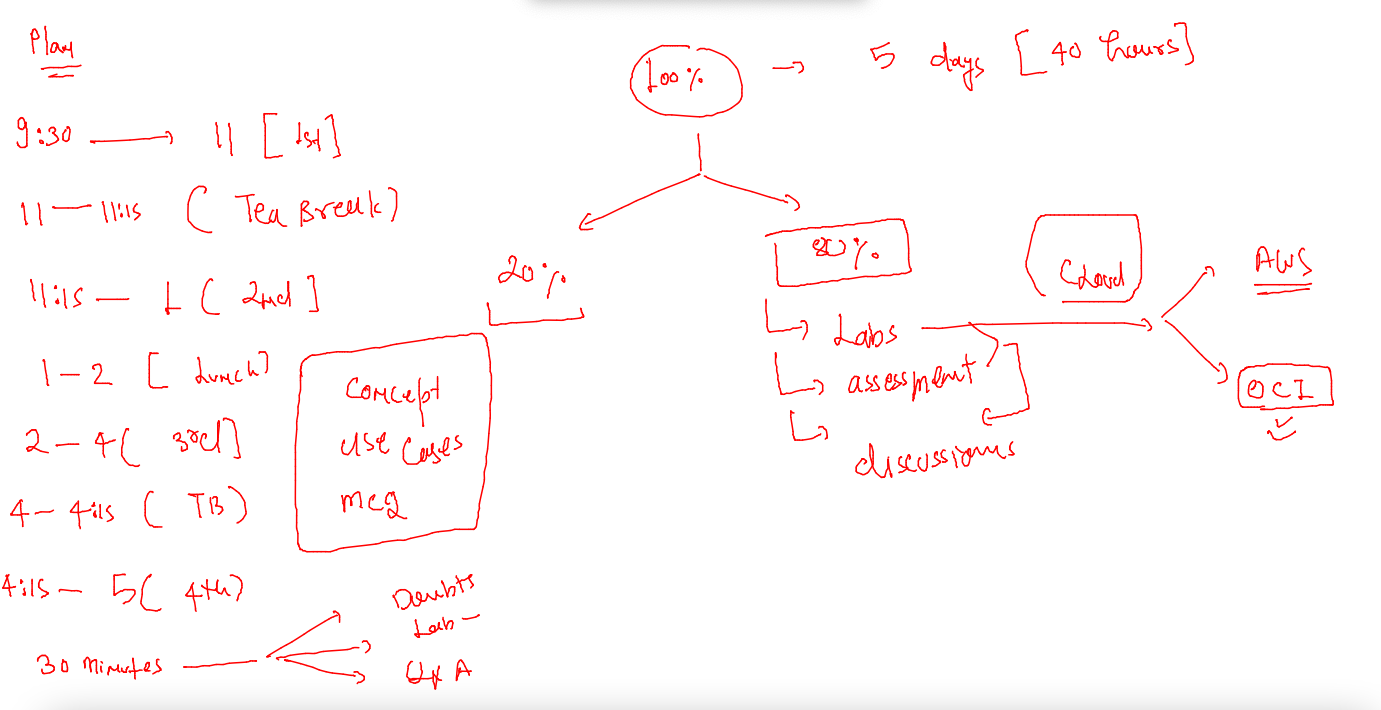 Plan
9:30 → 11 [1st]
11 — 11:15 ( Tea Break)
11:15 — 1 ( 2nd ]
1 – 2 [ Lunch]
2 – 4 ( 3rd]
4 – 4:15 ( TB )
4:15 – 5 ( 4th)
30 minutes
Doubts
Lab –
Q & A
100% → 5 days [ 40 hours]
20%
Concept
use cases
mcq
80%
Labs
assessment
discussions
Cloud
AWS
OCI